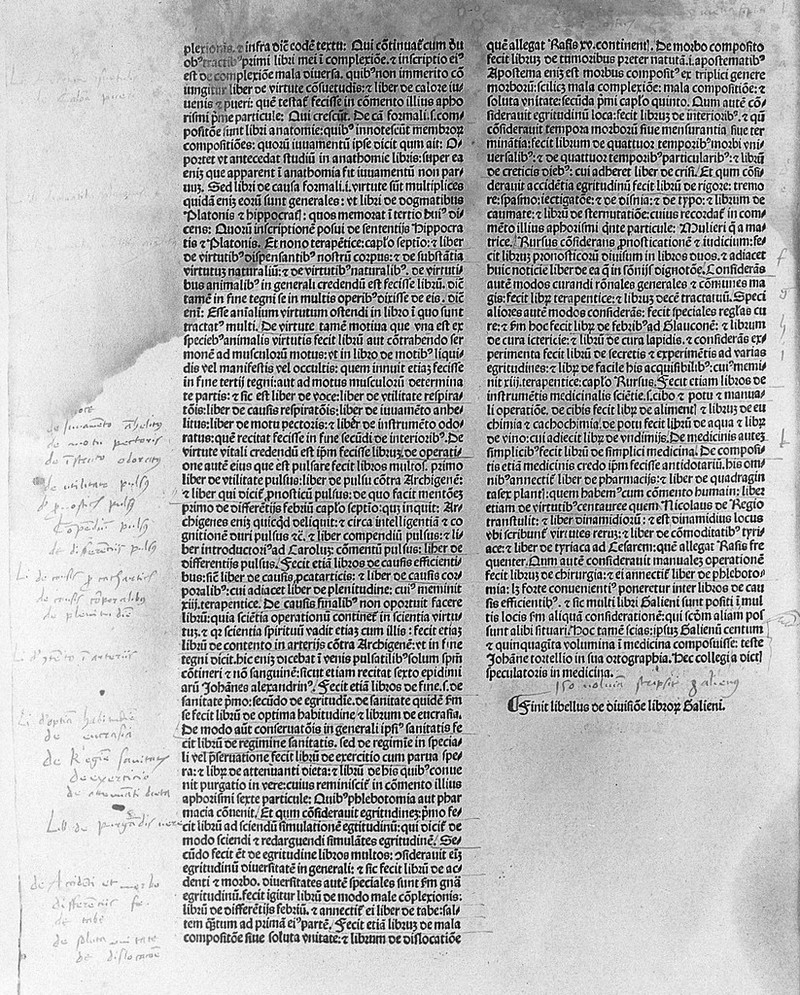 plexionis. ⁊ infra dicē eodē textu: Qui cōtinuat̄ cum du
obꝰ tractibꝰ primi libri mei ī complexiōe. ⁊ inscriptio eiꝰ
est de complexiōe mala diuersa. quibꝰ non immerito cō
iungitur liber de virtute cōsuetudīs: ⁊ liber de calore iu
uenis ⁊ pueri: quē testat̄ fecisse in cōmento illius apho
rismi p̄me particule: Qui crescūt. De cā formali.s.com-
positōe sunt libri anatomie: quibꝰ innotescūt membroꝝ
compositiōes: quoꝝ iuuamētū ipse dicit qum ait: O-
portet vt antecedat studiū in anathomie libris: super ea
enis que apparent ī anathomia fit iuuamentū non par-
uuꝫ. Sed libri de causa formali.i.virtute sūt multiplices
quidā enis eorū sunt generales: vt libri de dogmatibus
Platonis ⁊ hippocrat̄: quos memorat ī tertio huiꝰ di-
cens: Quorū inscriptionē posui de sententijs Hippocra
tis ⁊ Platonis. Et nono terapētice: caplo septīo: ⁊ liber
de virtutibꝰ dispensantibꝰ nostrū corpus: ⁊ de substātia
virtutuꝫ naturaliū: ⁊ de virtutibꝰ naturalibꝰ. de virtuti-
bus animalibꝰ in generali credendū est fecisse librū. dīc
tamē in fine tegni se in multis operibꝰ dixisse de eis. dīc
enī: Esse anīalium virtutum ostendi in libro ī quo sunt
tractatꝰ multi. De virtute tamē motiua que vna est ex
speciebꝰ animalis virtutis fecit librū aut cōtrahendo ser
monē ad musculorū motus: vt in libro de motibꝰ liqui-
dis vel manifestis vel occultis: quem innuit etiaꝫ fecisse
in fine tertij tegni: aut ad motus musculorū determina
te partis: ⁊ sic est liber de voce: liber de vtilitate respira-
tōis: liber de causis respiratōis: liber de iuuamēto anhe-
litus: liber de motu pectoris: ⁊ liber de instrumēto odo-
ratus: quē recitat fecisse in fine secūdi de interioribꝰ. De
virtute vitali credendū est ip̄m fecisse libruꝫ. de operati-
one autē eius que est pulsare fecit libros multos. primo
liber de vtilitate pulsus: liber de pulsu cōtra Archigenē:
⁊ liber qui dicit̄ p̄nosticū pulsus: de quo facit mentōeꝫ
primo de differētijs febriū caplo septīo: quꝫ inquit: Ar-
chigenes enis quicq̄d deliquit: ⁊ circa intelligentiā ⁊ co
gnitionē duri pulsus ⁊c̄. ⁊ liber compendiū pulsus: ⁊ li-
ber introductoriꝰ ad Caroluꝫ: cōmentū pulsus: liber de
differētijs pulsus. Fecit etiā libros de causis efficienti-
bus: sic̄ liber de causis p̄catarticis: ⁊ liber de causis cor-
poralibꝰ: cui adiacet liber de plenitudine: cuiꝰ meminit
xiij. terapentice. De causis finalibꝰ non oportuit facere
librū: quia sciētia operationū continet̄ in scientia virtu-
tuꝫ. ⁊ qꝛ scientia spirituū vadit etiaꝫ cum illis: fecit etiaꝫ
librū de contento in arterijs cōtra Archigenē: vt in fine
tegni dicit. hic enis dicebat ī venis pulsatilibꝰ solum sp̄m
cōtineri ⁊ nō sanguinē: sicut etiam recitat sexto epidimi
arū Johānes alexandrinꝰ. Fecit etiā libros de fine.s.de
sanitate p̄mo: secūdo de egritudīe. de sanitate quidē sm̄
se fecit librū de optima habitudine ⁊ librum de eucrasia.
De modo aūt conseruatōis in generali ipsiꝰ sanitatis fe
cit librū de regimine sanitatis. sed de regimīe in specia-
li vel p̄seruatione fecit librū de exercitio cum parua spe-
ra: ⁊ libꝝ de attenuanti dieta: ⁊ librū de his quibꝰ conue
nit purgatio in vere: cuius reminiscit̄ in cōmento illius
aphorismi sexte particule: Quibꝰ phlebotomia aut phar
macia cōuenit. Et qum cōsiderauit egritudineꝫ: p̄mo fe-
cit librū ad sciendū simulationē egritudinū: qui dicit̄ de
modo sciendi ⁊ redarguendi simulātes egritudinē. Se-
cūdo fecit ēt de egritudine libros multos: ɔsiderauit eiꝫ
egritudinū diuersitatē in generali: ⁊ sic fecit librū de ac-
cidenti ⁊ morbo. diuersitates autē speciales sunt sm̄ gnā
egritudinū. fecit igitur librū de modo male cōplexionis:
librū de differētijs febriū. ⁊ annectit̄ ei liber de tabe: sal-
tem q̄tum ad primā eiꝰ partē. Fecit etiā libruꝫ de mala
compositōe siue soluta vnitate: ⁊ librum de dislocatiōe
quē allegat Rasis xv. continent̄. De morbo composito
fecit librū de tumoribus preter naturā.i.apostematibꝰ
Apostema enis est morbus compositꝰ ex triplici genere
morborū: scilicꝫ mala complexiōe: mala compositiōe: ⁊
soluta vnitate: secūda p̄mi caplo quinto. Qum autē cō-
siderauit egritudinū loca: fecit librū de interioribꝰ. ⁊ qū
cōsiderauit tempora morborū siue mensurantia siue ter
minātia: fecit librum de quattuor temporibꝰ morbi vni-
uersalibꝰ: ⁊ de quattuor temporibꝰ particularibꝰ: ⁊ librū
de creticis diebꝰ: cui adheret liber de crisi. Et qum cōsi-
derauit accidētia egritudinū fecit librū de rigore: tremo
re: spasmo: iectigatōe: ⁊ de disnia: ⁊ de typo: ⁊ librum de
caumate: ⁊ librū de sternutatiōe: cuius recordat̄ in com-
mēto illius aphorismi q̄nte particule: Mulieri q̄ a ma-
trice. Rursus cōsiderans p̄nosticationē ⁊ iudicium: fe-
cit libruꝫ pronosticorū diuisum in libros duos. ⁊ adiacet
huic noticie liber de ea q̄ in sōnijs dignotōe. Considerās
autē modos curandi rōnales generales ⁊ cōmunes ma
gis: fecit libꝝ terapentice: ⁊ libruꝫ decē tractatuū. Speci
aliores autē modos considerās: fecit speciales reglas cu
re: ⁊ sm̄ hoc fecit libꝝ de febribꝰ ad Glauconē: ⁊ librum
de cura ictericie: ⁊ librū de cura lapidis. ⁊ considerās ex-
perimenta fecit librū de secretis ⁊ experimētis ad varias
egritudines: ⁊ libꝝ de facile his acquisibilibꝰ: cuiꝰ memi-
nit xiij. terapentice: caplo Rursus. Fecit etiam libros de
instrumētis medicinalis sciētie.s.cibo ⁊ potu ⁊ manua-
li operatiōe. de cibis fecit libꝝ de aliment̄ ⁊ libruꝫ de eu
chimia ⁊ cachochimia. de potu fecit librū de aqua ⁊ libꝝ
de vino: cui adiecit libꝝ de vndimijs. De medicinis auteꝫ
simplicibꝰ fecit librū de simplici medicina. De composi-
tis etiā medicinis credo ip̄m fecisse antidotariū. his om-
nibꝰ annectit̄ liber de pharmacijs: ⁊ liber de quadragin
taseꝝ plant̄: quem habemꝰ cum cōmento humain: liber
etiam de virtutibꝰ centauree quem Nicolaus de Regio
transtulit: ⁊ liber dinamidiorū: ⁊ est dinamidius locus
vbi scribunt̄ virtutes reruꝫ: ⁊ liber de cōmoditatibꝰ tyri-
ace: ⁊ liber de tyriaca ad Cesarem: quē allegat Rasis fre
quenter. Qum autē considerauit manualeꝫ operationē
fecit libruꝫ de chirurgia: ⁊ ei annectit̄ liber de phleboto-
mia: lꝫ forte conuenientiꝰ poneretur inter libros de cau
sis efficientibꝰ. ⁊ sic multi libri Galieni sunt positi ī mul
tis locis sm̄ aliquā considerationē: qui scōm aliam pos
sunt alibi situari. Hoc tamē scias: ipsuꝫ Galienū centum
⁊ quinquagīta volumina ī medicina composuisse: teste
Johāne tortellio in sua ortographia. Hec collegi a dict̄
speculatoris in medicina.
150 volumina scripsit galienus
Finit libellus de diuisiōe libroꝝ Galieni.
de iuuamēto ābelitus
de motu pectoris
de īstrūto odoratꝰ
de vtilitate pulsꝰ
compēdiū pulsꝰ
de differētijs pulsꝰ
de eucrasia
de Regiē sanitatis
de exercitio
de attenuāti dieta
de Accidēti et morbo
de tabe
de soluta vnitate
de dislocatiōe